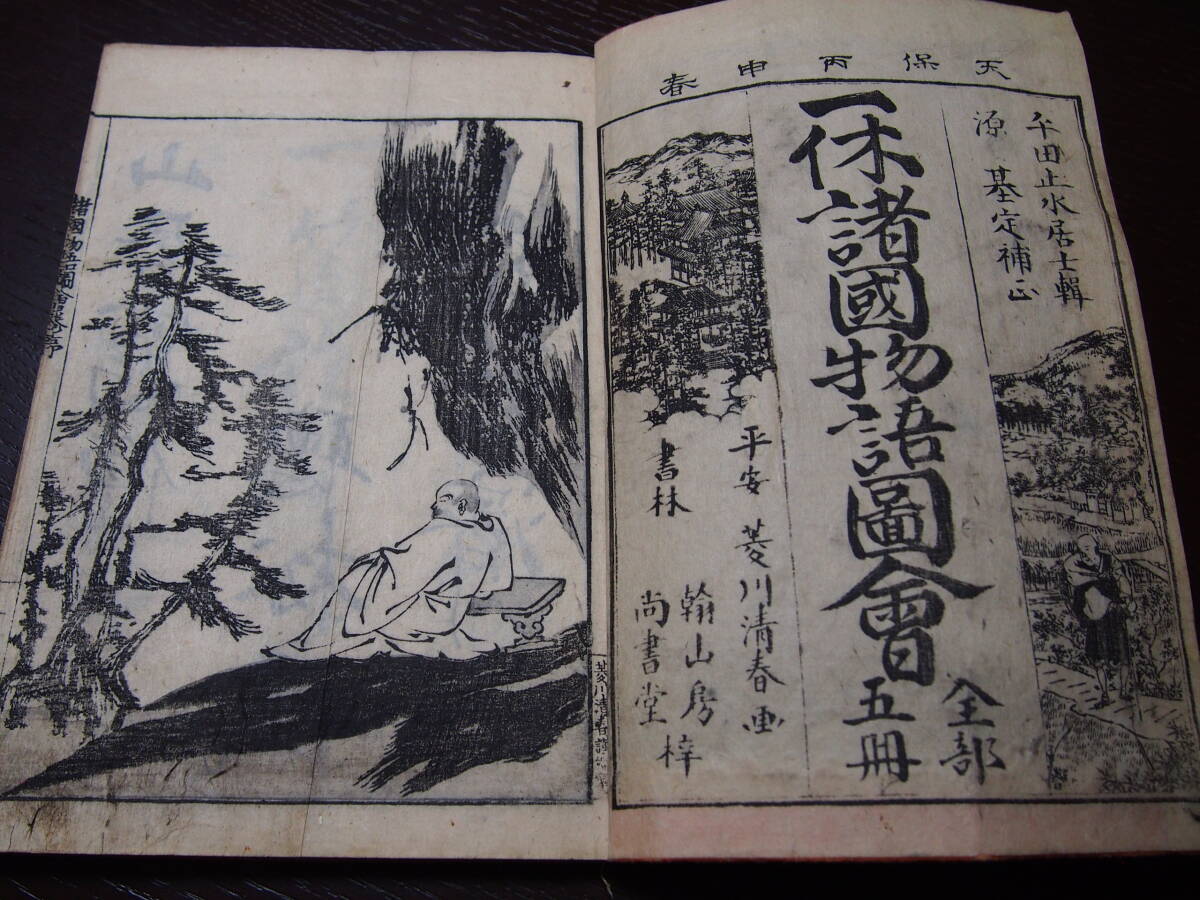 天保丙申春
平田止水居士輯
源基定補正
一休諸國物語圖會
全部
五冊
平安 菱川清春画
書林
翰山房
尚書堂
梓
諸國物語圖會
菱川清春